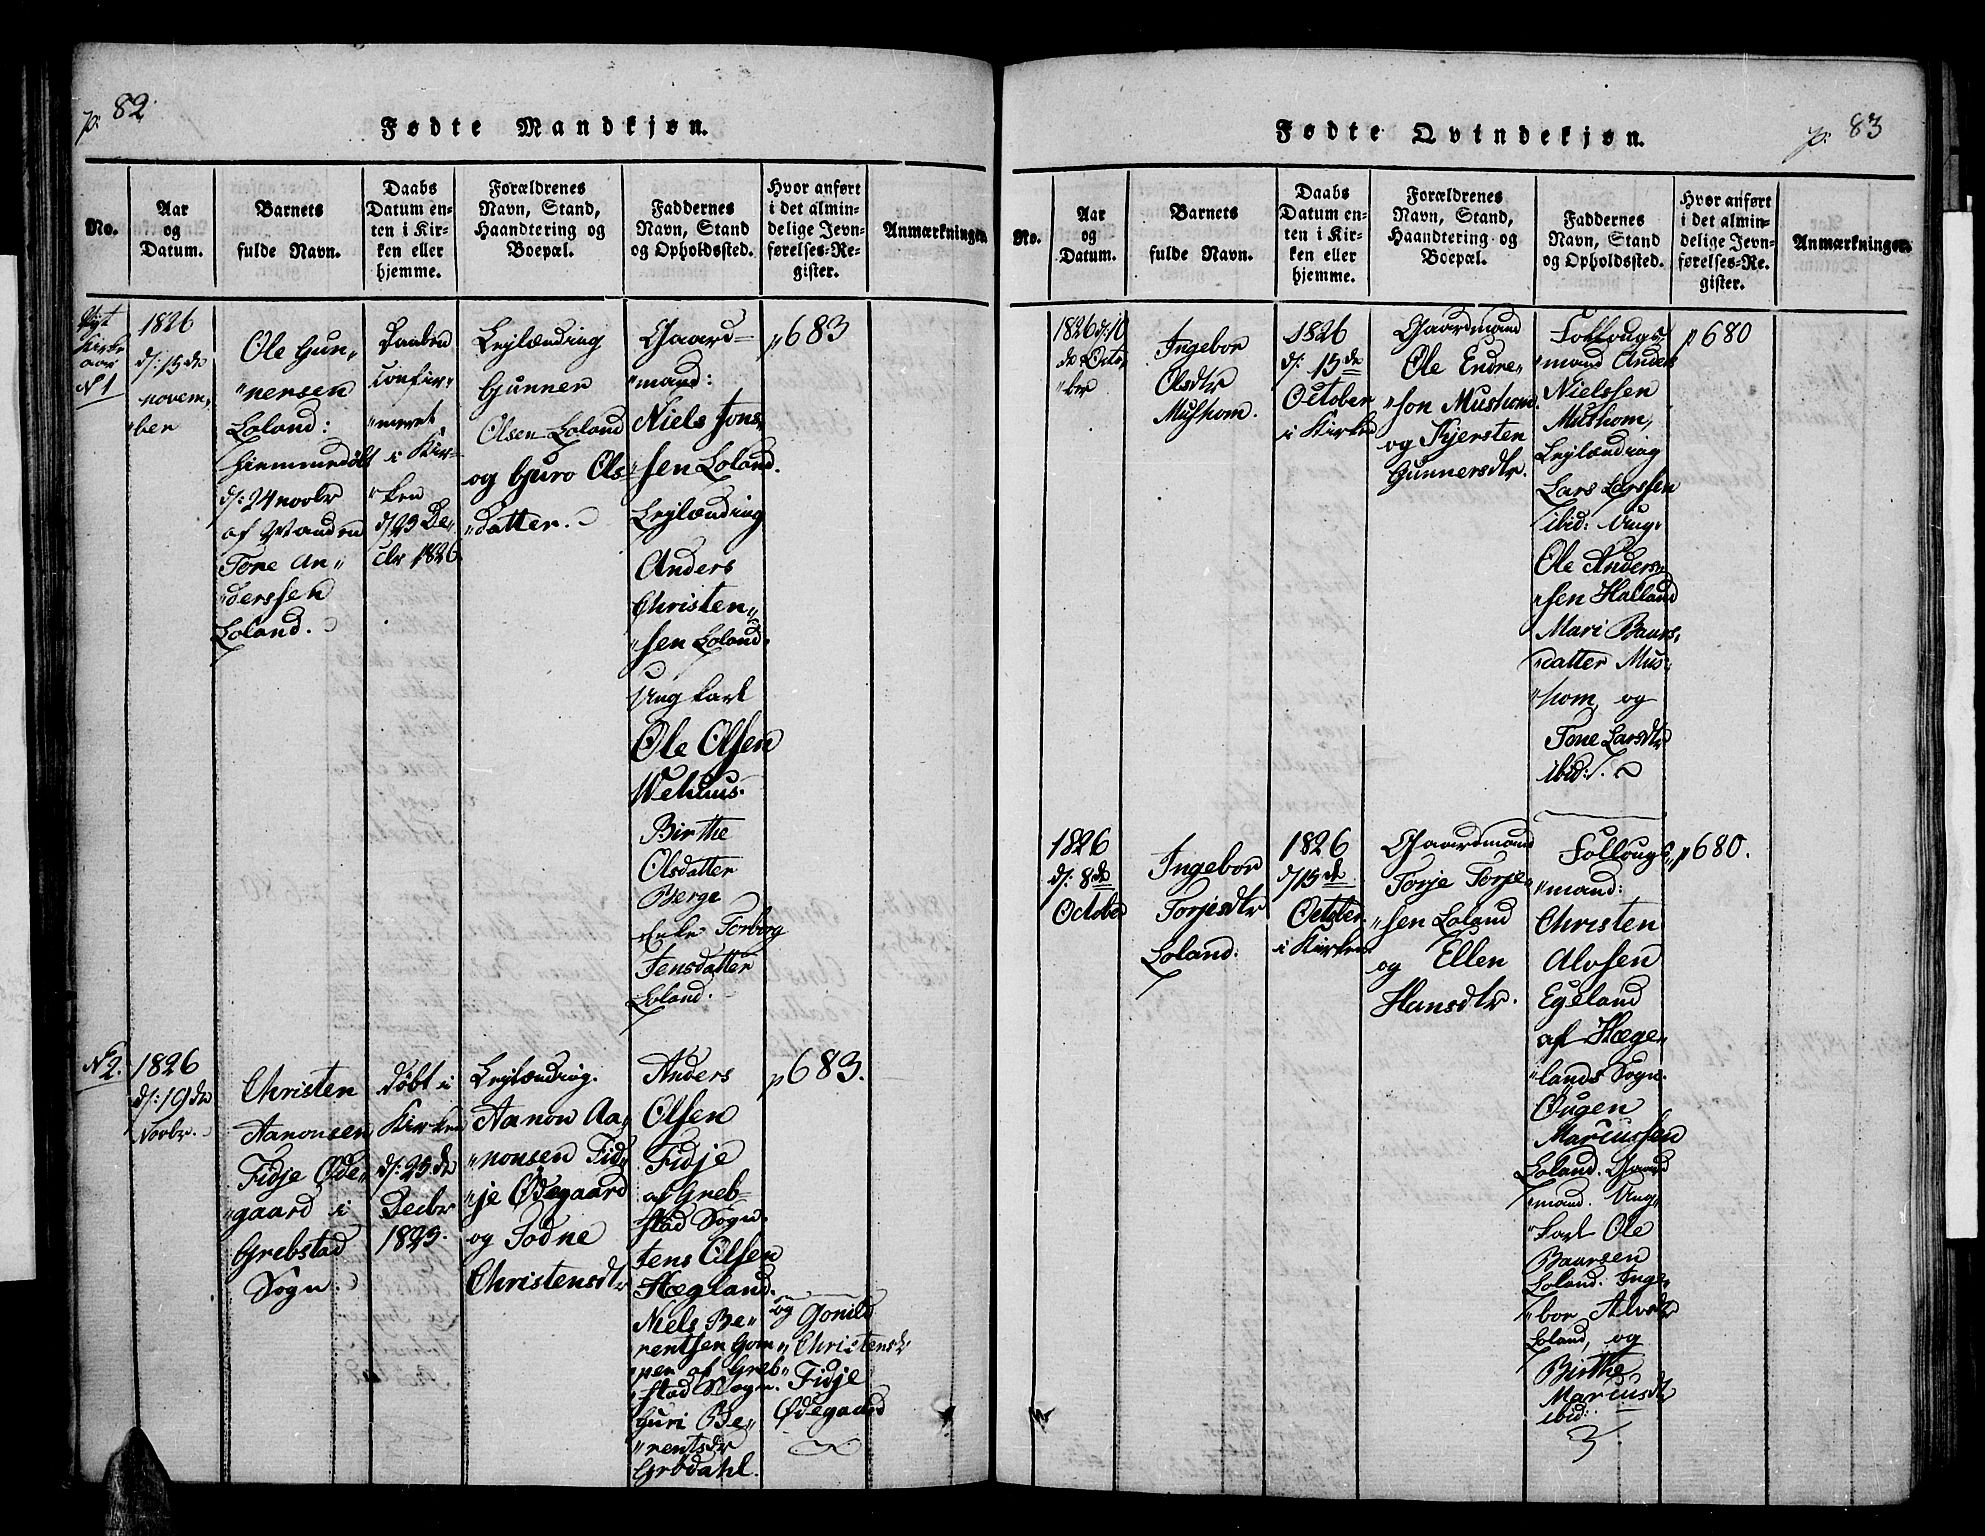 p. 82
Fødte Mandkjøn.
No.
Aar
og
Datum.
Barnets
fulde Navn.
Daabs
Datum en-
ten i Kir-
ken eller
hjemme.
Forældrenes
Navn, Stand,
Haandtering og
Boepæl.
Faddernes
Navn, Stand
og Opholdssted.
Hvor anført
i det almin-
delige Jevn-
førelses-Re-
gister.
Anmærkninger.
Nyt
Kirke
aar
N 1
1826
d: 15 de
novem,
"ber
Ole Gun-
"nersen
Loland:
hiemmedøbt
d: 24 novbr
af Manden
Tone An-
"derssen
Loland.
Daaben
confir-
"meret
i Kir-
"ken
d/23 De-
cbr 1826.
Leylænding
Gunner
Olsen Loland
og Guro Ols-
"datter.
Gaard-
"mand:
Niels Jons,
"sen Loland.
Leylænding
Anders
Christen,
"sen Loland.
Ung karl
Ole Olsen
Wehuus.
Birthe
Olsdatter
Berge
Enke Torborg
Jensdatter
Loland.
p 683
N 2.
1826
d: 19 de
Novbr.
Christen
Aanonsen
Fidje Øde-
"gaard i
Grebstad
Sogn.
døbt i
Kirken
d: 25 de
Decbr
1825.
Leylænding.
Aanon Aa,
"nonsen Fid,
"je Ødegaard
og Todne
Christensdtr
Anders
Olsen
Fidje
af Greb-
stad Sogn.
Jens Olsen
Hægland.
Niels Be-
rentsen Gom-
"pen af Greb-
"stad Sogn.
Guri Be-
"rentsdr
Grødahl.
p 683.
og Gonild
"Christensdr
Fidje
Ødegaard
p. 83
Fødte Qvindekjøn.
No.
Aar
og
Datum.
Barnets
fulde Navn.
Daabs
Datum en-
ten i Kir-
ken eller
hjemme.
Forældrenes
Navn, Stand,
Haandtering og
Boepæl.
Faddernes
Navn, Stand
og Opholdssted.
Hvor anført
i det almin-
delige Jevn-
førelses-Re-
gister.
Anmærkninger.
1826 d: 10
de Octo,
"ber
Ingebor
Olsdtr
Mushom.
1826
d: 15 de
October
i Kirken
Gaardmand
Ole Endre-
"son Mushom
og Kjersten
Gunnersdtr.
Follougs,
"mand Anders
Nielssen
Mushom,
Leylænding
Lars Larssen
ibid: Ung,
Ole Anders,
"sen Halland
Mari Baars,
"datter Mus-
"hom, og
Tone Larsdtr
ibid:
p 680
1826
d: 8 de
October
Ingebor
Torjesdtr
Loland.
1826
d/15 de
October
i Kirken
Gaardmand
Torje Torje-
"sen Loland
og Ellen
Hansdtr.
Follougs,
"mand:
Christen
Alvsen
Egeland
af Hæge-
"lands Sogn.
Øugen
Marcussen
Loland. Gaard
"mand. Ung,
"karl Ole
Baarsen
Loland. Inge,
"bor Alvsdtr
Loland, og
Birthe
Marcusdtr
ibid:
p 680.